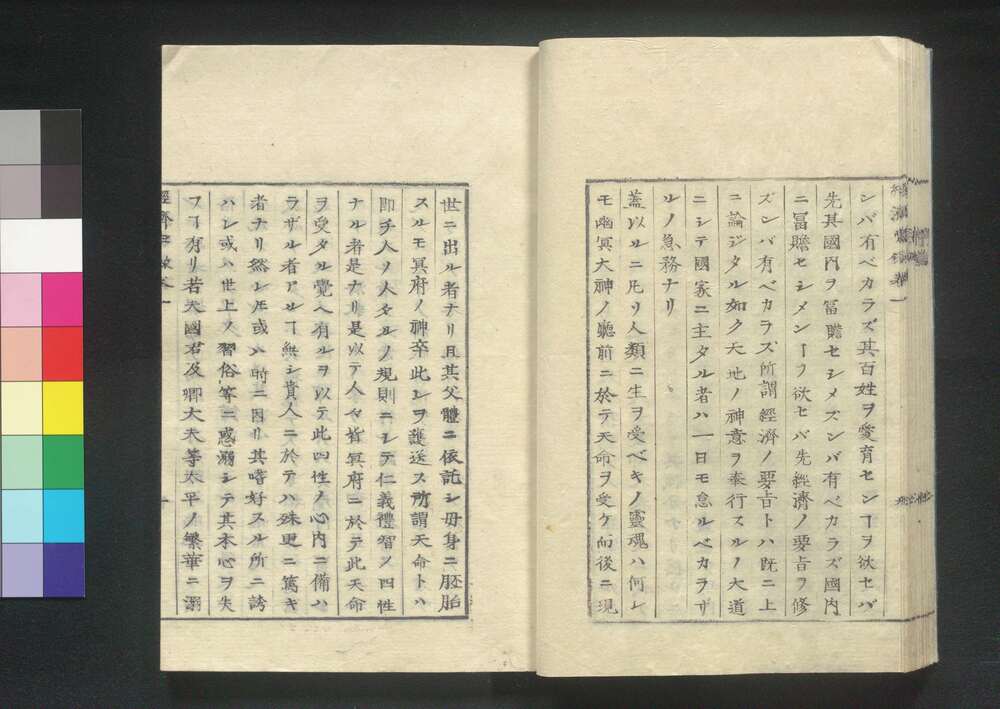 ンバ有ベカラズ其百姓ヲ愛育センヿヲ欲セバ
先其國内ヲ冨贍セシメズンバ有ベカラズ國内
ニ冨贍セシメンヿヲ欲セバ先經濟ノ要旨ヲ修
ズンバ有ベカラズ所謂經濟ノ要旨トハ既ニ上
ニ論ジタル如ク天地ノ神意ヲ奉行スルノ大道
ニシテ國家ニ主タル者ハ一日モ怠ルベカラザ
ルノ急務ナリ
蓋以ルニ凡ソ人類ニ生ヲ受ベキノ靈魂ハ何レ
モ幽冥大神ノ聽前ニ於テ天命ヲ受ケ而後ニ現
世ニ出ル者ナリ且其父體ニ依託シ母身ニ胚胎
スルモ冥府ノ神卒此レヲ護送ス所謂天命トハ
即チ人ノ人タルノ規則ニシテ仁義禮智ノ四性
ナル者是ナリ是以テ人々皆冥府ニ於テ此天命
ヲ受タル覺ヘ有ルヲ以テ此四性ノ心内ニ備ハ
ラザル者アルヿ無シ貴人ニ於テハ殊更ニ篤キ
者ナリ然レ𪜈或ハ時ニ因リ其嗜好スル所ニ誇
ハレ或ハ世上ノ習俗等ニ惑溺シテ其本心ヲ失
フヿ有リ若夫國君及卿大夫等太平ノ繁華ニ溺